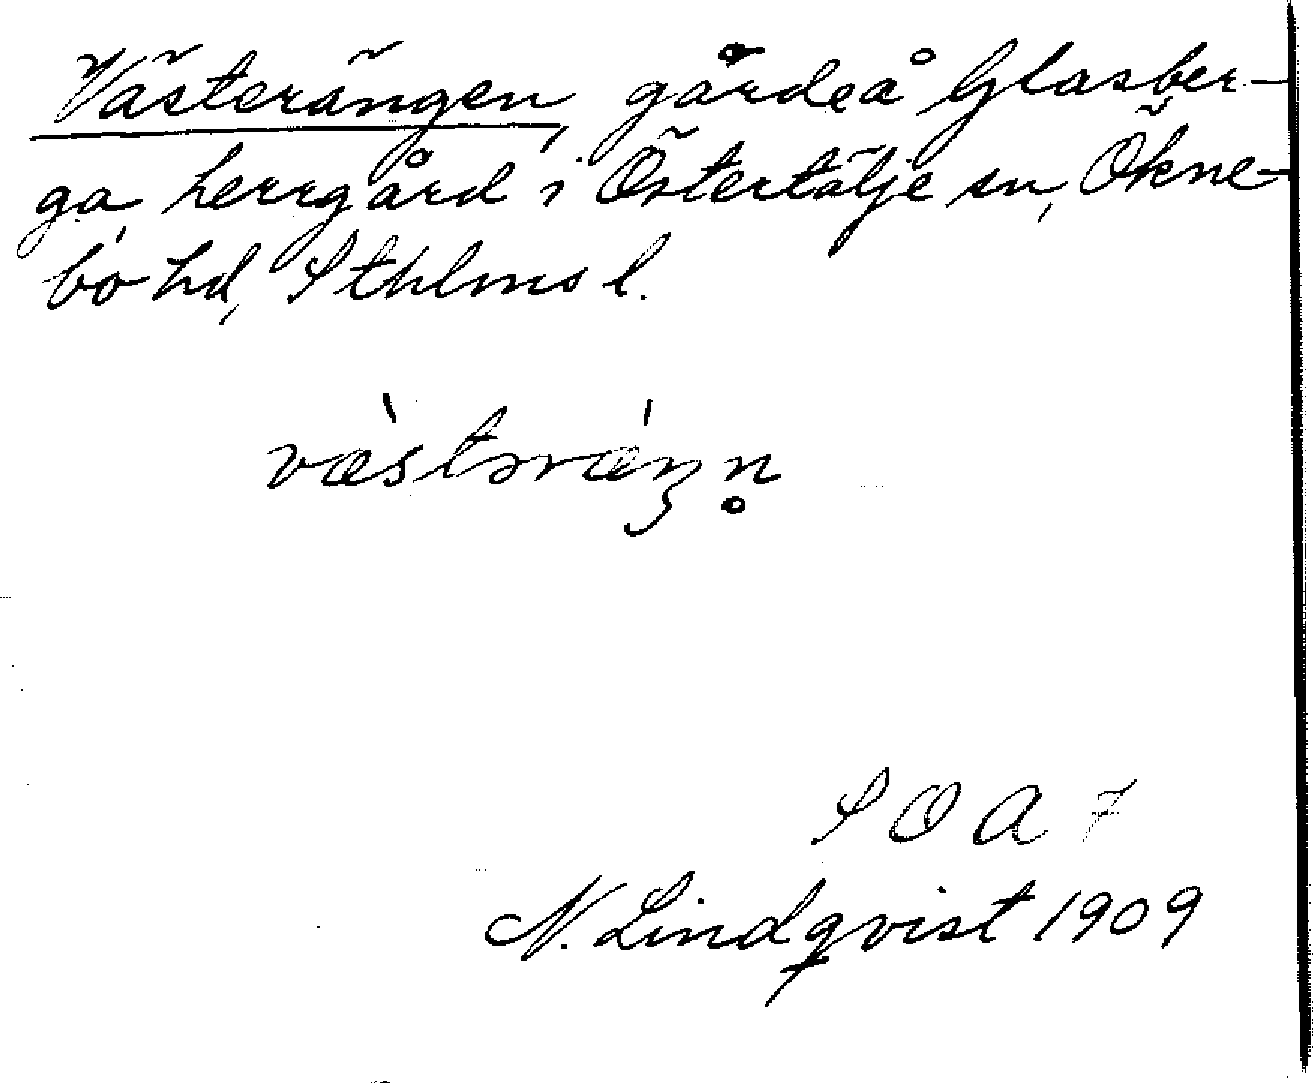 Västerängen, gärde å Glasber-
ga herrgård i Östertälje sn, Ökne-
bo hd, Sthlms l.
væ̀stərǽŋn̥
SOA 7
N. Lindqvist 1909